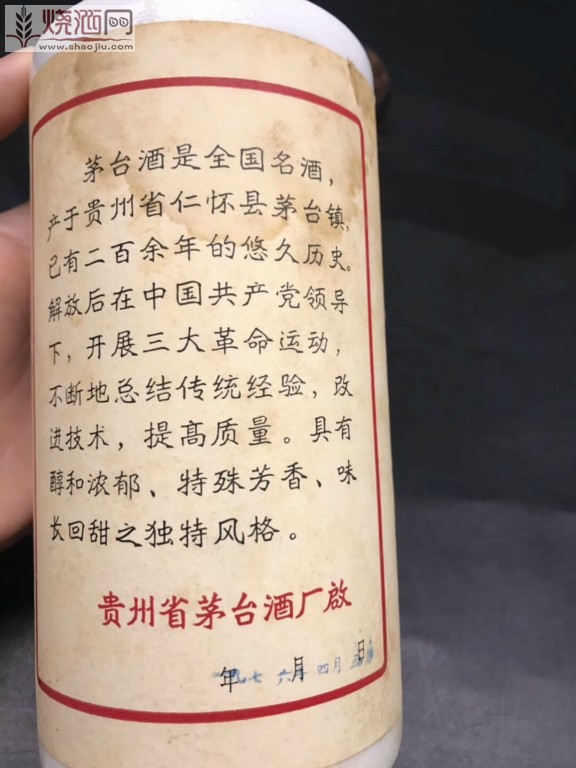 烧酒网
www.shaojiu.com
茅台酒是全国名酒，
产于贵州省仁怀县茅台镇，
已有二百余年的悠久历史。
解放后在中国共产党领导
下，开展三大革命运动，
不断地总结传统经验，改
进技术，提高质量。具有
醇和浓郁、特殊芳香、味
长回甜之独特风格。
贵州省茅台酒厂啟
年 月 日
一九七六年四月